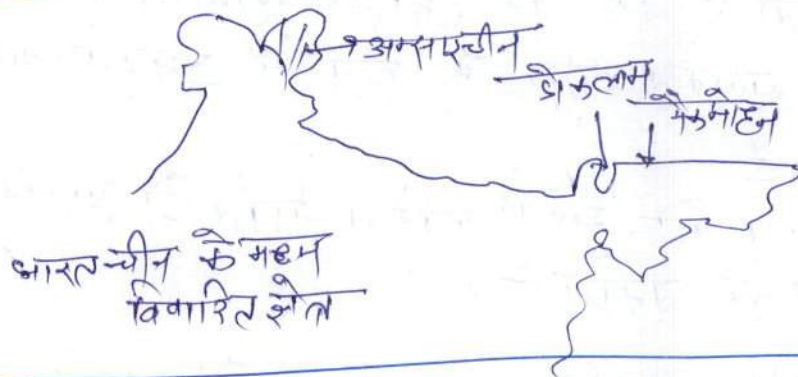 अक्साई चीन
डोकलाम
मैकमोहन
भारत चीन के मध्य
विवादित क्षेत्र